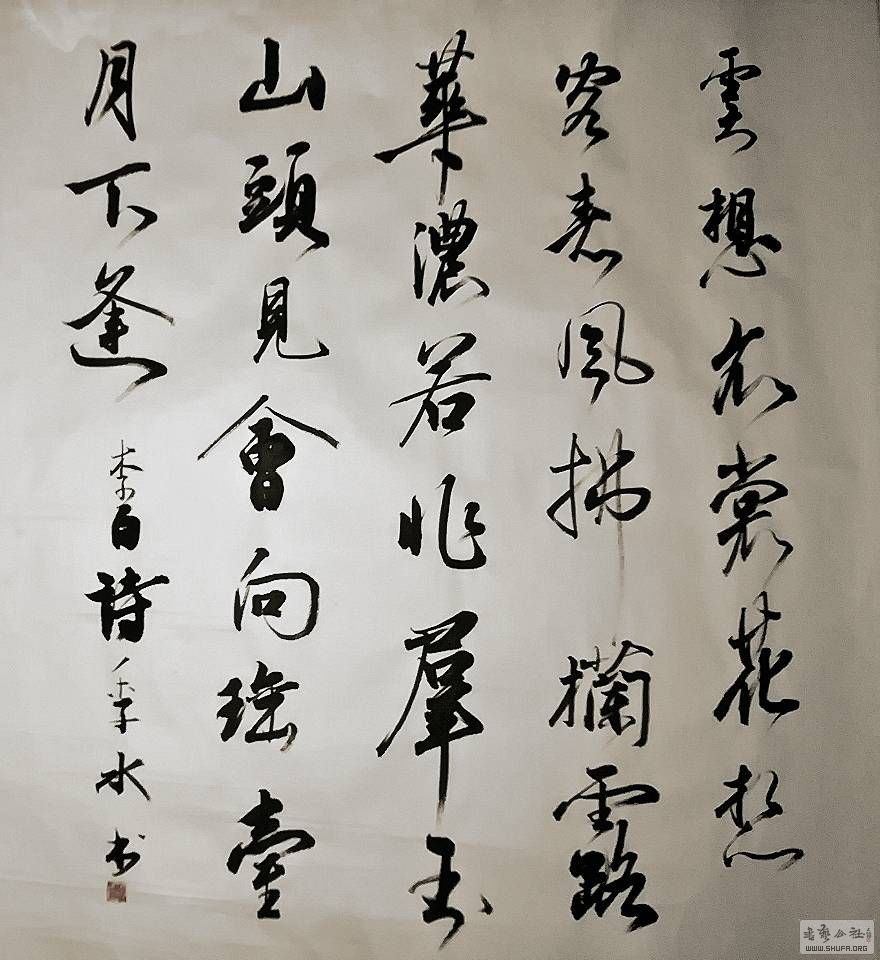 雲想衣裳花想
容春風拂欄露
華濃若非羣玉
山頭見會向瑤臺
月下逢
李白詩 季水书
WWW.SHUFA.ORG